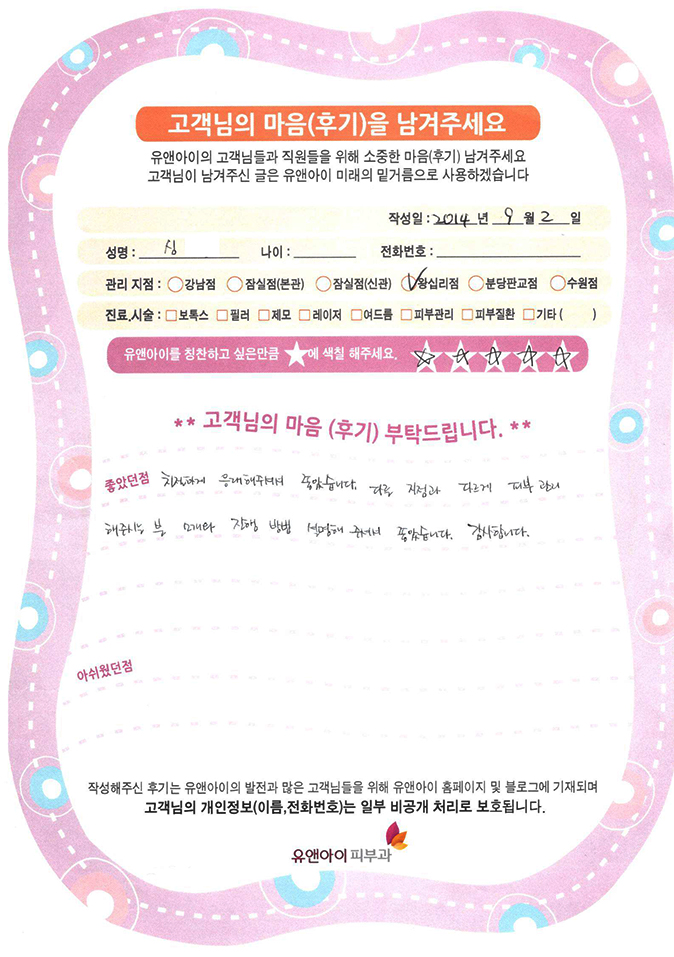 고객님의 마음(후기)을 남겨주세요
유앤아이의 고객님들과 직원들을 위해 소중한 마음(후기) 남겨주세요
고객님이 남겨주신 글은 유앤아이 미래의 밑거름으로 사용하겠습니다
작성일 : 2014 년 9 월 2 일
성명 : 심 나이 : 전화번호 :
관리 지점 : 강남점 잠실점(본관) 잠실점(신관) 왕십리점 분당판교점 수원점
진료,시술 : 보톡스 필러 제모 레이저 여드름 피부관리 피부질환 기타 ( )
유앤아이를 칭찬하고 싶은만큼 ★에 색칠 해주세요.
** 고객님의 마음 (후기) 부탁드립니다. **
좋았던점 친절하게 응대해주셔서 좋았습니다. 다른 지점과 다르게 피부 관리
해주시는 분 소개와 진행 방법 설명해 주셔서 좋았습니다. 감사합니다.
아쉬웠던점
작성해주신 후기는 유앤아이의 발전과 많은 고객님들을 위해 유앤아이 홈페이지 및 블로그에 기재되며
고객님의 개인정보(이름,전화번호)는 일부 비공개 처리로 보호됩니다.
유앤아이 피부과